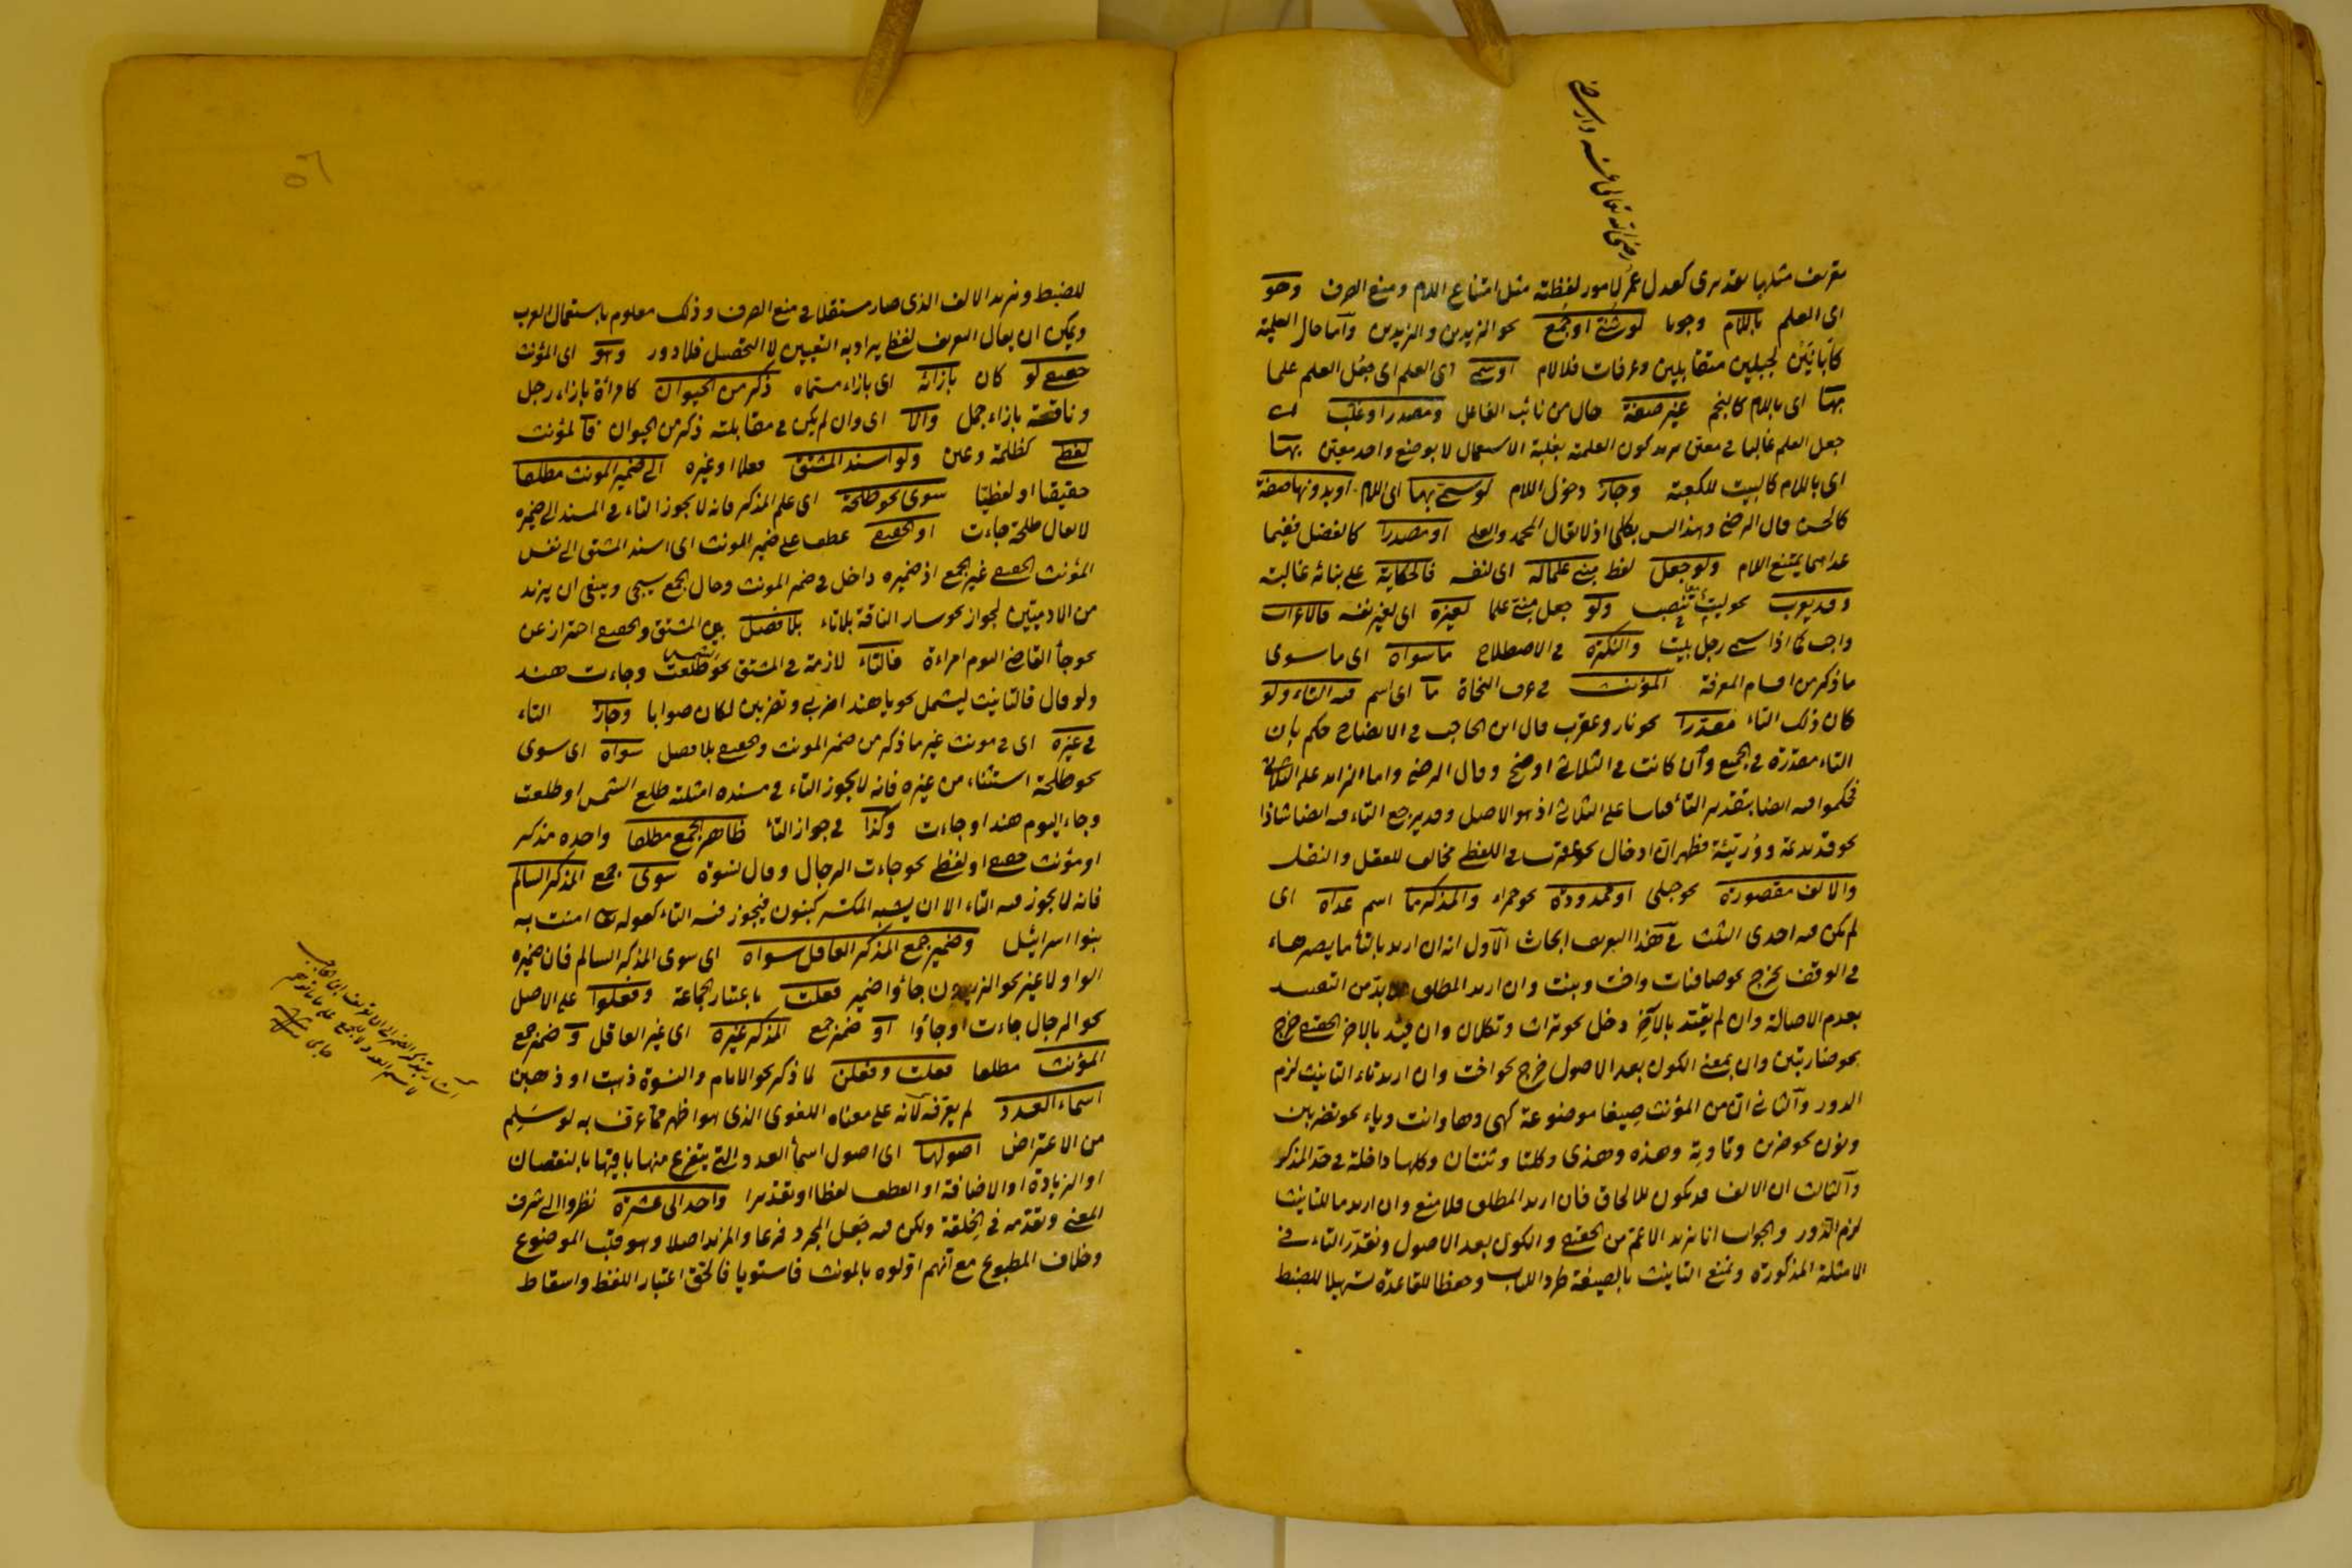 رضی الله تعالی عنه وارضه
تعريف مثلها تقديرى كعدل عمر لامور لفظية مثل امتناع اللام ومنع الصرف وهو
اى العلم باللام وجوبا لو ثنى او جمع نحو الزيدين والزيدين واما حال العلمية
كابانين لجبلين متقابلين وعرفات فلا لام او سمى اى العلم اى جعل العلم علما
بهما اى باللام كالنجم غير صفة حال من نائب الفاعل ومصدرا وغلب اى
جعل العلم غالبا فى معين يريد كون العلمية بغلبة الاستعمال لا بوضع واحد معين بهما
اى باللام كالبيت للكعبة وجاز دخول اللام لو سمى بهما اى اللام او بدونها صفة
كالحسن قال الرضى وهذا ليس بكلى اذ لا يقال المحمد والعلى او مصدرا كالفضل ففيما
عداهما يمتنع اللام ولو جعل لفظ مبنى علما له اى لنفسه فالحكاية على بنائه غالبة
وقد يعرب نحو ليت تنصب ولو جعل مبنى علما لغيره اى لغير نفسه فالاعراب
واجب كما اذا سمى رجل بليت والنكرة فى الاصطلاح ما سواه اى ما سوى
ما ذكر من اقسام المعرفة المؤنث فى عرف النحاة ما اى اسم فيه التاء ولو
كان ذلك التاء مقدرا نحو نار وعقرب قال ابن الحاجب فى الايضاح حكم بان
التاء مقدرة فى الجميع وان كانت فى الثلاثى اوضح وقال الرضى واما الزايد على الثلاثى
فحكموا فيه ايضا بتقدير التاء قياسا على الثلاثى اذ هو الاصل وقد يرجع التاء فيه ايضا شاذا
نحو قديديمة ووريئة فظهر ان ادخال نحو عقرب فى اللفظى مخالف للعقل والنقل
والالف مقصورة نحو حبلى او ممدودة نحو حمراء والمذكر ما اسم عداه اى
لم يكن فيه احدى الثلث فى هذا التعريف ابحاث الاول انه ان اريد بالتاء ما يصير هاء
فى الوقف يخرج نحو صافنات واخت وبنت وان اريد المطلق فلا بد من التقييد
بعدم الاصالة وان لم يقيد بالآخر دخل نحو تراث وتكلان وان قيد بالآخر الحقيقى خرج
نحو ضاربتين وان بمعنى الكون بعد الاصول خرج نحو اخت وان اريد تاء التانيث لزم
الدور والثانى ان من المؤنث صيغا موضوعة كهى وها وانت وياء نحو تضربين
ونون نحو ضربن وتا وته وهذه وهذى وكلتا وثنتان وكلها داخلة فى حد المذكر
والثالث ان الالف قد يكون للالحاق فان اريد المطلق فلا منع وان اريد ما للتانيث
لزم الدور والجواب انا نريد الاعم من الحقيقى والكون بعد الاصول ونقدر التاء فى
الامثلة المذكورة ونمنع التانيث بالصيغة طردا للباب وحفظا للقاعدة تسهيلا للضبط
٥٦
للضبط ونريد الالف الذى صار مستقلا فى منع الصرف وذلك معلوم باستعمال العرب
ويمكن ان يقال التعريف لفظى يراد به التعيين لا التحصيل فلا دور وهو اى المؤنث
حقيقى لو كان بازائه اى بازاء مسماه ذكر من الحيوان كامرأة بازاء رجل
وناقة بازاء جمل والا اى وان لم يكن فى مقابلته ذكر من الحيوان فالمؤنث
لفظى كظلمة وعين ولو اسند المشتق فعلا او غيره الى ضمير المونث مطلقا
حقيقيا او لفظيا سوى نحو طلحة اى علم المذكر فانه لا يجوز التاء فى المسند الى ضميره
لا يقال طلحة جاءت او الحقيقى عطف على ضمير المونث اى اسند المشتق الى نفس
المؤنث الحقيقى غير الجمع اذ ضميره داخل فى ضمير المونث وحال الجمع سيجى وينبغى ان يزيد
من الادميين لجواز نحو سار الناقة بلا تاء بلا فصل بين المشتق والحقيقى احتراز عن
نحو جاء القاضى اليوم امراءة فالتاء لازمة فى المشتق نحو الشمس طلعت وجاءت هند
ولو قال فالتانيث ليشمل نحو يا هند اضربى وتضربين لكان صوابا وجاز التاء
فى غيره اى فى مونث غير ما ذكر من ضمير المونث والحقيقى بلا فصل سواه اى سوى
نحو طلحة استثناء من غيره فانه لا يجوز التاء فى مسنده امثلته طلع الشمس او طلعت
وجاء اليوم هند او جاءت وكذا فى جواز التاء ظاهر الجمع مطلقا واحده مذكر
او مؤنث حقيقى او لفظى نحو جاءت الرجال وقال نسوة سوى جمع المذكر السالم
فانه لا يجوز فيه التاء الا ان يشبه المكسر كبنون فيجوز فيه التاء كقوله تعالى امنت به
بنوا اسرائيل وضمير جمع المذكر العاقل سواه اى سوى المذكر السالم فان ضميره
الواو لا غير نحو الزيدون جاؤا ضمير فعلت باعتبار الجماعة وفعلوا على الاصل
نحو الرجال جاءت او جاؤا او ضمير جمع المذكر غيره اى غير العاقل وضمير جمع
المؤنث مطلقا فعلت وفعلن لما ذكر نحو الايام والنسوة ذهبت او ذهبن
اسماء العدد لم يعرفه لانه على معناه اللغوى الذى هو اظهر مما عرف به لو سلم
من الاعتراض اصولها اى اصول اسماء العدد والتى يتفرع منها باقيها بالنقصان
او الزيادة او الاضافة او العطف لفظا او تقديرا واحد الى عشرة نظروا الى شرف
المعنى وتقدمه فى الخلقة ولكن فيه جعل المجرد فرعا والمزيد اصلا وهو قلب الموضوع
وخلاف المطبوع مع انهم اولوه بالمونث فاستويا فالحق اعتبار اللفظ واسقاط
اشار بتذكير الضمير الى ان تعريف ابن الحاجب
لاسم العدد لا للجمع على ما توهم
جامى